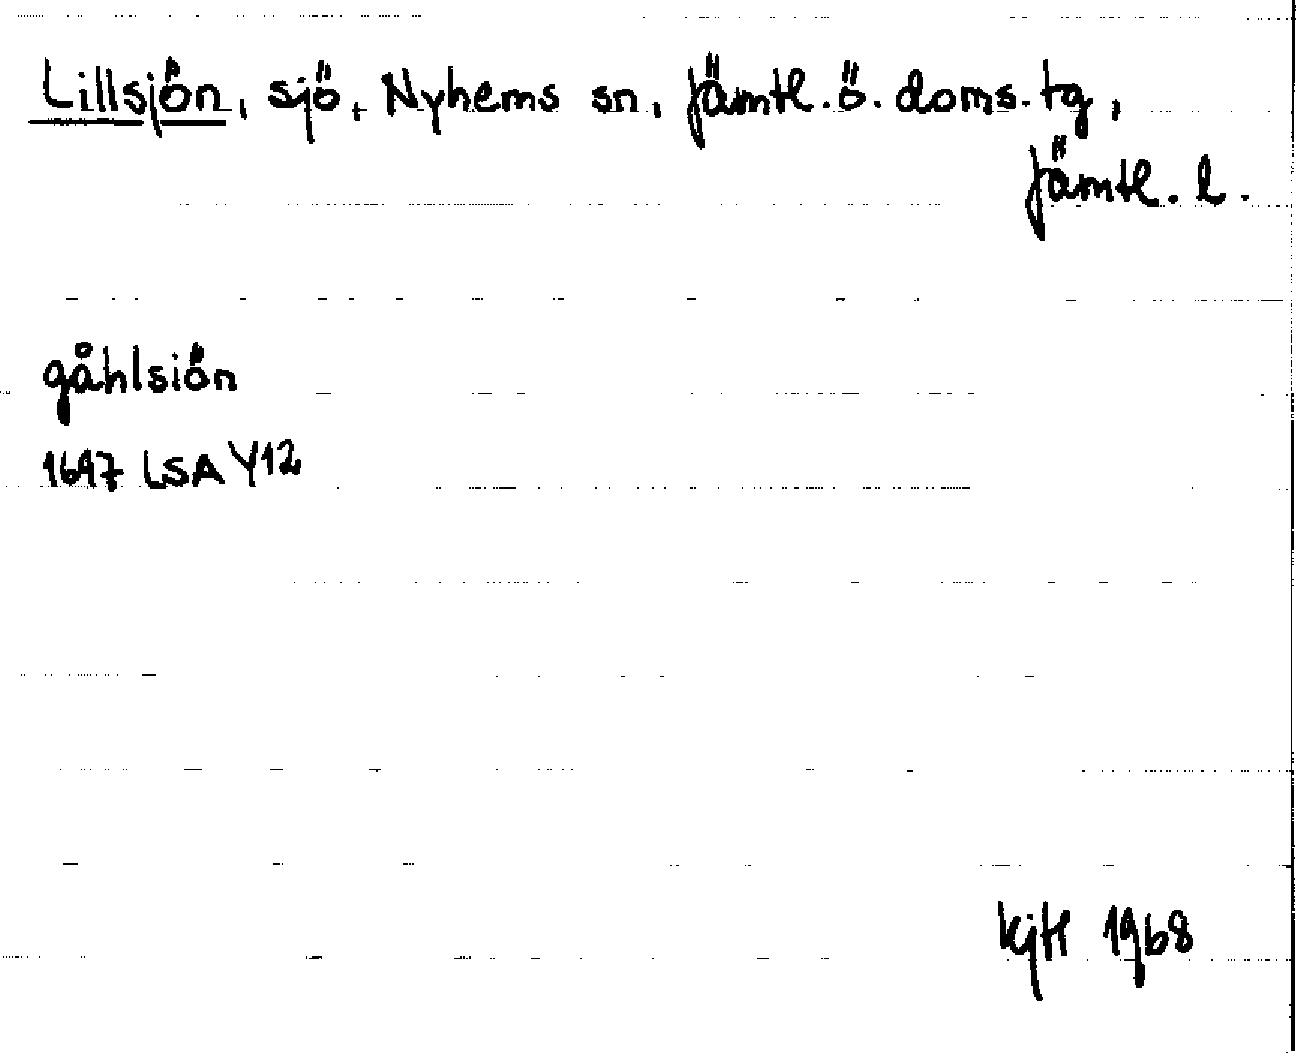 Lillsjön, sjö, Nyhems sn, Jämtl. ö. doms. tg,
Jämtl. l.
gåhlsiön
1697 LSA Y12
KjH 1968